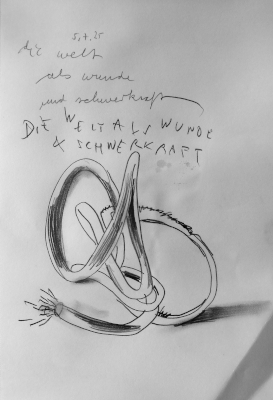 5.7.25
die welt
als wunde
und schwerkraft
DIE WELT ALS WUNDE
& SCHWERKRAFT